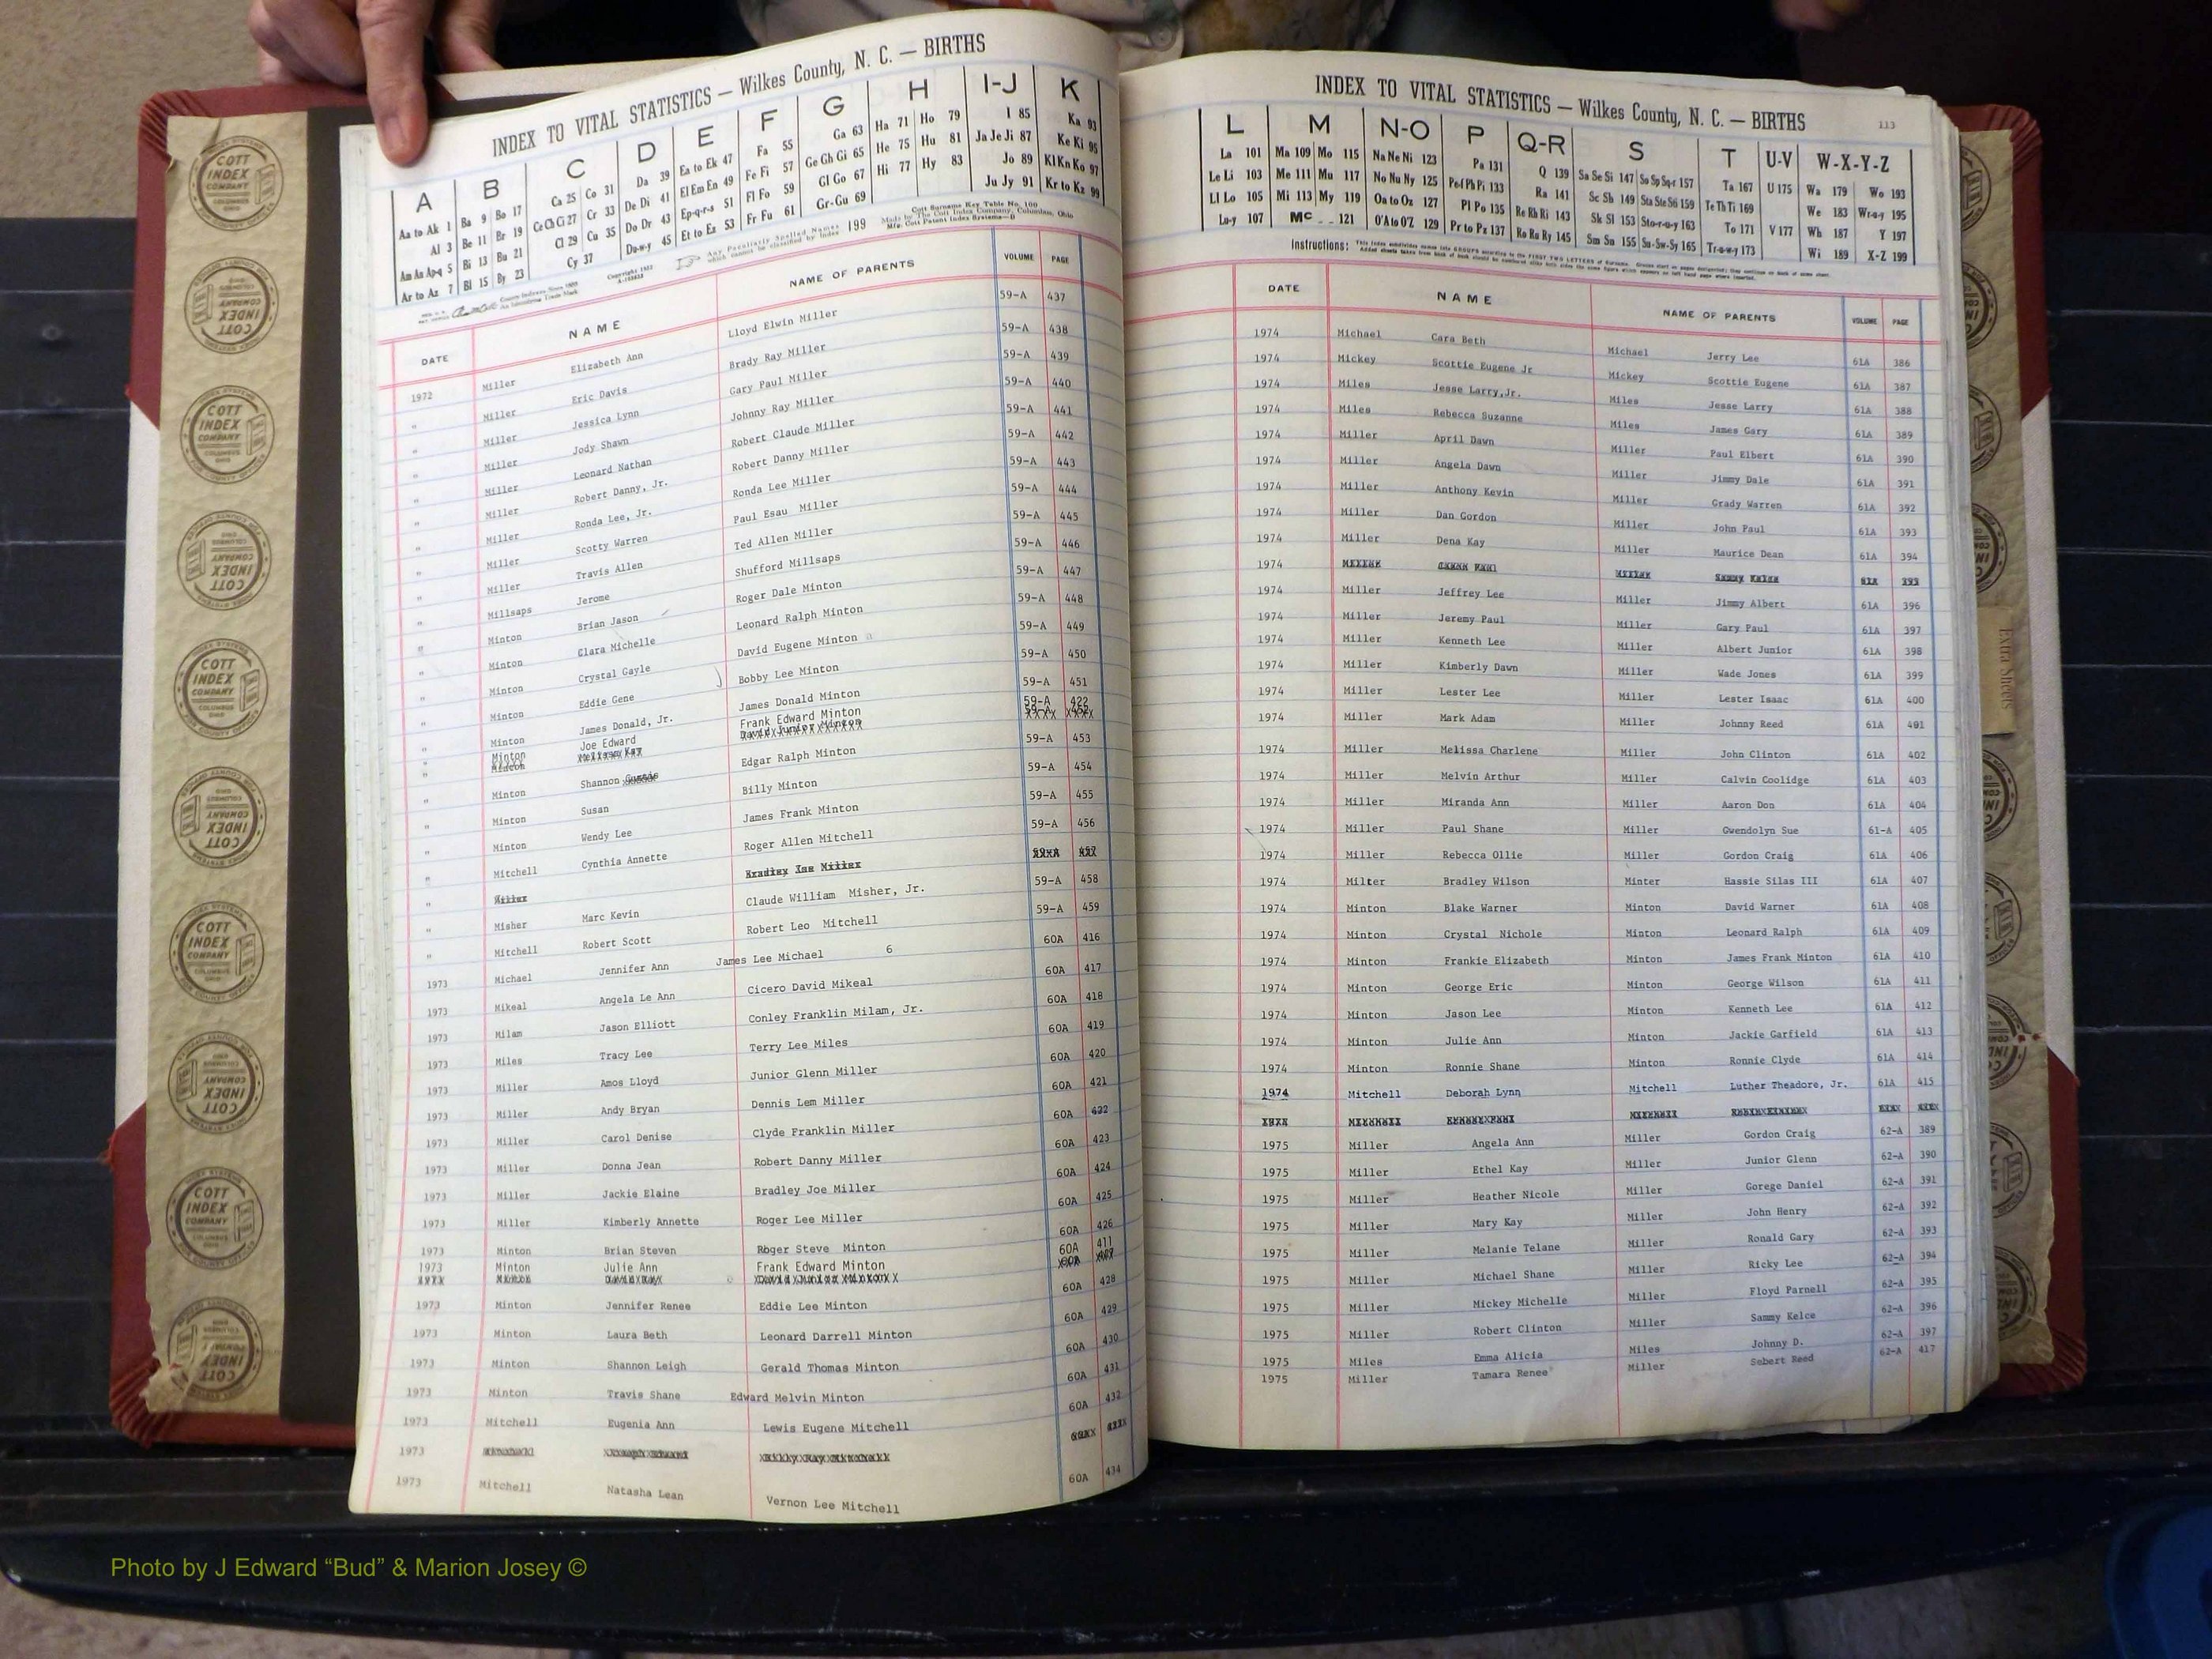 INDEX TO VITAL STATISTICS — Wilkes County, N. C. — BIRTHS
A B C D E F G H I-J K
Aa to Ak 1 Ba 9 Bo 17 Ca 25 Co 31 Da 39 Ea to Ek 47 Fa 55 Ga 63 Ha 71 Ho 79 I 85 Ka 93
Al 3 Be 11 Br 19 Ce Ch Ci 27 Cr 33 De Di 41 El Em En 49 Fe Fi 57 Ge Gh Gi 65 He 75 Hu 81 Ja Je Ji 87 Ke Ki 95
Am An Ap-q 5 Bi 13 Bu 21 Cl 29 Cu 35 Do Dr 43 Ep-q-r-s 51 Fl Fo 59 Gl Go 67 Hi 77 Hy 83 Jo 89 Kl Kn Ko 97
Ar to Az 7 Bl 15 By 23 Cy 37 Du-w-y 45 Et to Ez 53 Fr Fu 61 Gr-Gu 69 Ju Jy 91 Kr to Kz 99
Any Peculiarly Spelled Names which cannot be classified by index 199
Cott Surname Key Table No. 100
Made by The Cott Index Company, Columbus, Ohio
DATE NAME NAME OF PARENTS VOLUME PAGE
1972 Miller Elizabeth Ann Lloyd Elwin Miller 59-A 437
" Miller Eric Davis Brady Ray Miller 59-A 438
" Miller Jessica Lynn Gary Paul Miller 59-A 439
" Miller Jody Shawn Johnny Ray Miller 59-A 440
" Miller Leonard Nathan Robert Claude Miller 59-A 441
" Miller Robert Danny, Jr. Robert Danny Miller 59-A 442
" Miller Ronda Lee, Jr. Ronda Lee Miller 59-A 443
" Miller Scotty Warren Paul Esau Miller 59-A 444
" Miller Travis Allen Ted Allen Miller 59-A 445
" Millsaps Jerome Shufford Millsaps 59-A 446
" Minton Brian Jason Roger Dale Minton 59-A 447
" Minton Clara Michelle Leonard Ralph Minton 59-A 448
" Minton Crystal Gayle David Eugene Minton 59-A 449
" Minton Eddie Gene Bobby Lee Minton 59-A 450
" Minton James Donald, Jr. James Donald Minton 59-A 451
" Minton Joe Edward Frank Edward Minton 59-A 422
" Minton Shannon Curtis Edgar Ralph Minton 59-A 453
" Minton Susan Billy Minton 59-A 454
" Minton Wendy Lee James Frank Minton 59-A 455
" Mitchell Cynthia Annette Roger Allen Mitchell 59-A 456
" Miller Bradley Joe Miller 59-A 457
" Misher Marc Kevin Claude William Misher, Jr. 59-A 458
" Mitchell Robert Scott Robert Leo Mitchell 59-A 459
1973 Michael Jennifer Ann James Lee Michael 6 60A 416
1973 Mikeal Angela Le Ann Cicero David Mikeal 60A 417
1973 Milam Jason Elliott Conley Franklin Milam, Jr. 60A 418
1973 Miles Tracy Lee Terry Lee Miles 60A 419
1973 Miller Amos Lloyd Junior Glenn Miller 60A 420
1973 Miller Andy Bryan Dennis Lem Miller 60A 421
1973 Miller Carol Denise Clyde Franklin Miller 60A 422
1973 Miller Donna Jean Robert Danny Miller 60A 423
1973 Miller Jackie Elaine Bradley Joe Miller 60A 424
1973 Miller Kimberly Annette Roger Lee Miller 60A 425
1973 Minton Brian Steven Roger Steve Minton 60A 426
1973 Minton Julie Ann Frank Edward Minton 60A 411
1973 Minton Jennifer Renee Eddie Lee Minton 60A 428
1973 Minton Laura Beth Leonard Darrell Minton 60A 429
1973 Minton Shannon Leigh Gerald Thomas Minton 60A 430
1973 Minton Travis Shane Edward Melvin Minton 60A 431
1973 Mitchell Eugenia Ann Lewis Eugene Mitchell 60A 432
1973
1973 Mitchell Natasha Lean Vernon Lee Mitchell 60A 434
INDEX TO VITAL STATISTICS — Wilkes County, N. C. — BIRTHS 113
L M N-O P Q-R S T U-V W-X-Y-Z
La 101 Ma 109 Mo 115 Na Ne Ni 123 Pa 131 Q 139 Sa Se Si 147 So Sp Sq-r 157 Ta 167 U 175 Wa 179 Wo 193
Le Li 103 Me 111 Mu 117 No Nu Ny 125 Pe-f Ph Pi 133 Ra 141 Sc Sh 149 Sta Ste Sti 159 Te Th Ti 169 We 183 Wr-u-y 195
Ll Lo 105 Mi 113 My 119 Oa to Oz 127 Pl Po 135 Re Rh Ri 143 Sk Sl 153 Sto-r-u-y 163 To 171 V 177 Wh 187 Y 197
Lu-y 107 Mc 121 O'A to O'Z 129 Pr to Pz 137 Ro Ru Ry 145 Sm Sn 155 Su-Sw-Sy 165 Tr-u-w-y 173 Wi 189 X-Z 199
Instructions:
DATE NAME NAME OF PARENTS VOLUME PAGE
1974 Michael Cara Beth Michael Jerry Lee 61A 386
1974 Mickey Scottie Eugene Jr Mickey Scottie Eugene 61A 387
1974 Miles Jesse Larry,Jr. Miles Jesse Larry 61A 388
1974 Miles Rebecca Suzanne Miles James Gary 61A 389
1974 Miller April Dawn Miller Paul Elbert 61A 390
1974 Miller Angela Dawn Miller Jimmy Dale 61A 391
1974 Miller Anthony Kevin Miller Grady Warren 61A 392
1974 Miller Dan Gordon Miller John Paul 61A 393
1974 Miller Dena Kay Miller Maurice Dean 61A 394
1974
1974 Miller Jeffrey Lee Miller Jimmy Albert 61A 396
1974 Miller Jeremy Paul Miller Gary Paul 61A 397
1974 Miller Kenneth Lee Miller Albert Junior 61A 398
1974 Miller Kimberly Dawn Miller Wade Jones 61A 399
1974 Miller Lester Lee Miller Lester Isaac 61A 400
1974 Miller Mark Adam Miller Johnny Reed 61A 401
1974 Miller Melissa Charlene Miller John Clinton 61A 402
1974 Miller Melvin Arthur Miller Calvin Coolidge 61A 403
1974 Miller Miranda Ann Miller Aaron Don 61A 404
1974 Miller Paul Shane Miller Gwendolyn Sue 61-A 405
1974 Miller Rebecca Ollie Miller Gordon Craig 61A 406
1974 Bradley Wilson Minter Hassie Silas III 61A 407
1974 Minton Blake Warner Minton David Warner 61A 408
1974 Minton Crystal Nichole Minton Leonard Ralph 61A 409
1974 Minton Frankie Elizabeth Minton James Frank Minton 61A 410
1974 Minton George Eric Minton George Wilson 61A 411
1974 Minton Jason Lee Minton Kenneth Lee 61A 412
1974 Minton Julie Ann Minton Jackie Garfield 61A 413
1974 Minton Ronnie Shane Minton Ronnie Clyde 61A 414
1974 Mitchell Deborah Lynn Mitchell Luther Theadore, Jr. 61A 415
1975 Miller Angela Ann Miller Gordon Craig 62-A 389
1975 Miller Ethel Kay Miller Junior Glenn 62-A 390
1975 Miller Heather Nicole Miller Gorege Daniel 62-A 391
1975 Miller Mary Kay Miller John Henry 62-A 392
1975 Miller Melanie Telane Miller Ronald Gary 62-A 393
1975 Miller Michael Shane Miller Ricky Lee 62-A 394
1975 Miller Mickey Michelle Miller Floyd Parnell 62-A 395
1975 Miller Robert Clinton Miller Sammy Kelce 62-A 396
1975 Miles Emma Alicia Miles Johnny D. 62-A 397
1975 Miller Tamara Renee Miller Sebert Reed 62-A 417
Extra Sheets
COTT INDEX COMPANY COLUMBUS OHIO
Photo by J Edward “Bud” & Marion Josey ©